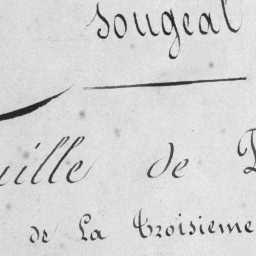 Sougeal
uille de
de La Troisieme